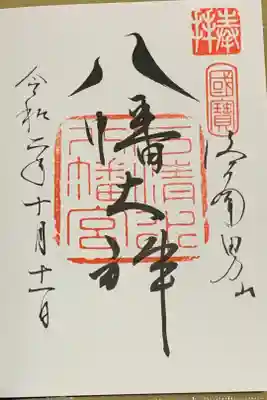 奉拝
國寶
洛南男山
八幡大神
石清水
八幡宮
令和二年十月十一日